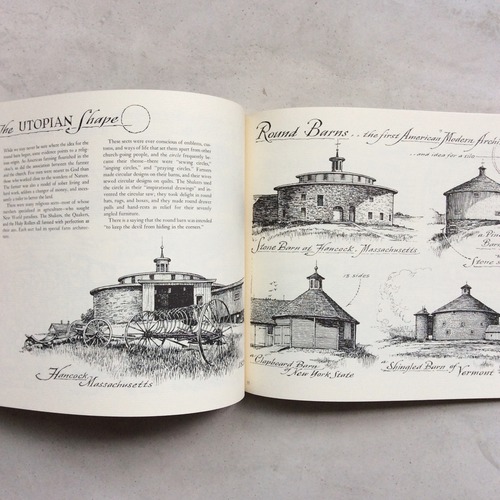 The UTOPIAN Shape
While we may never be sure when the idea for the
round barn began, most evidence points to a religi-
ous origin. As American farming flourished in the
1800's, so did the association between the farmer
and the church. Few men were nearer to God than
those who worked close to the wonders of Nature.
The farmer was also a model of sober living and
hard work, seldom a changer of money, and invari-
ably a tailor to better the land.
There were many religious sects most of whose
members specialized in agriculture—who sought
New World paradise. The Shakers, the Quakers,
and the Holy Rollers all farmed with perfection at
their aim. Each sect had its special farm architec-
ture.
These sects were ever conscious of emblems, cus-
toms and ways of life that set them apart from other
church-going people, and the circle frequently be-
came their theme—there were "sewing circles,"
"singing circles," and "praying circles." Farmers
made circular designs on their barns, and their wives
sewed circular designs on quilts. The Shakers used
the circle in their "inspirational drawings" and in-
vented the circular saw; they took delight in round
hats, rugs, and boxes, and they made round drawer
pulls and hand-rests in relief for their severely
angled furniture.
There is a saying that the round barn was intended
"to keep the devil from hiding in the corners."
Hancock
Massachusetts
Round Barns .. the first American "Modern Archi
.. and idea for a silo
Stone Barn at Hancock, Massachusetts
a
Barn
Stone
12 sides
a Clapboard Barn
of New York State
a Shingled Barn of
Vermont